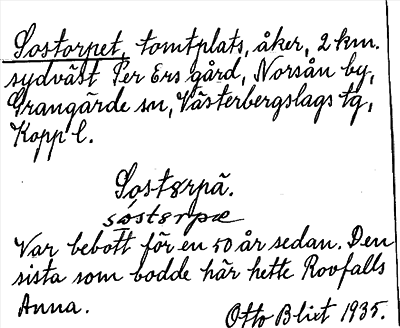 Sostorpet, tomtplats, åker, 2 km.
sydväst Per Ers gård, Norsån by,
Grangärde sn, Västerbergslags tg,
Kopp l.
Sostørpä.
såstørpæ
Var bebott för en 50 år sedan. Den
sista som bodde här hette Rovfalls
Anna.
Otto Blixt 1935.